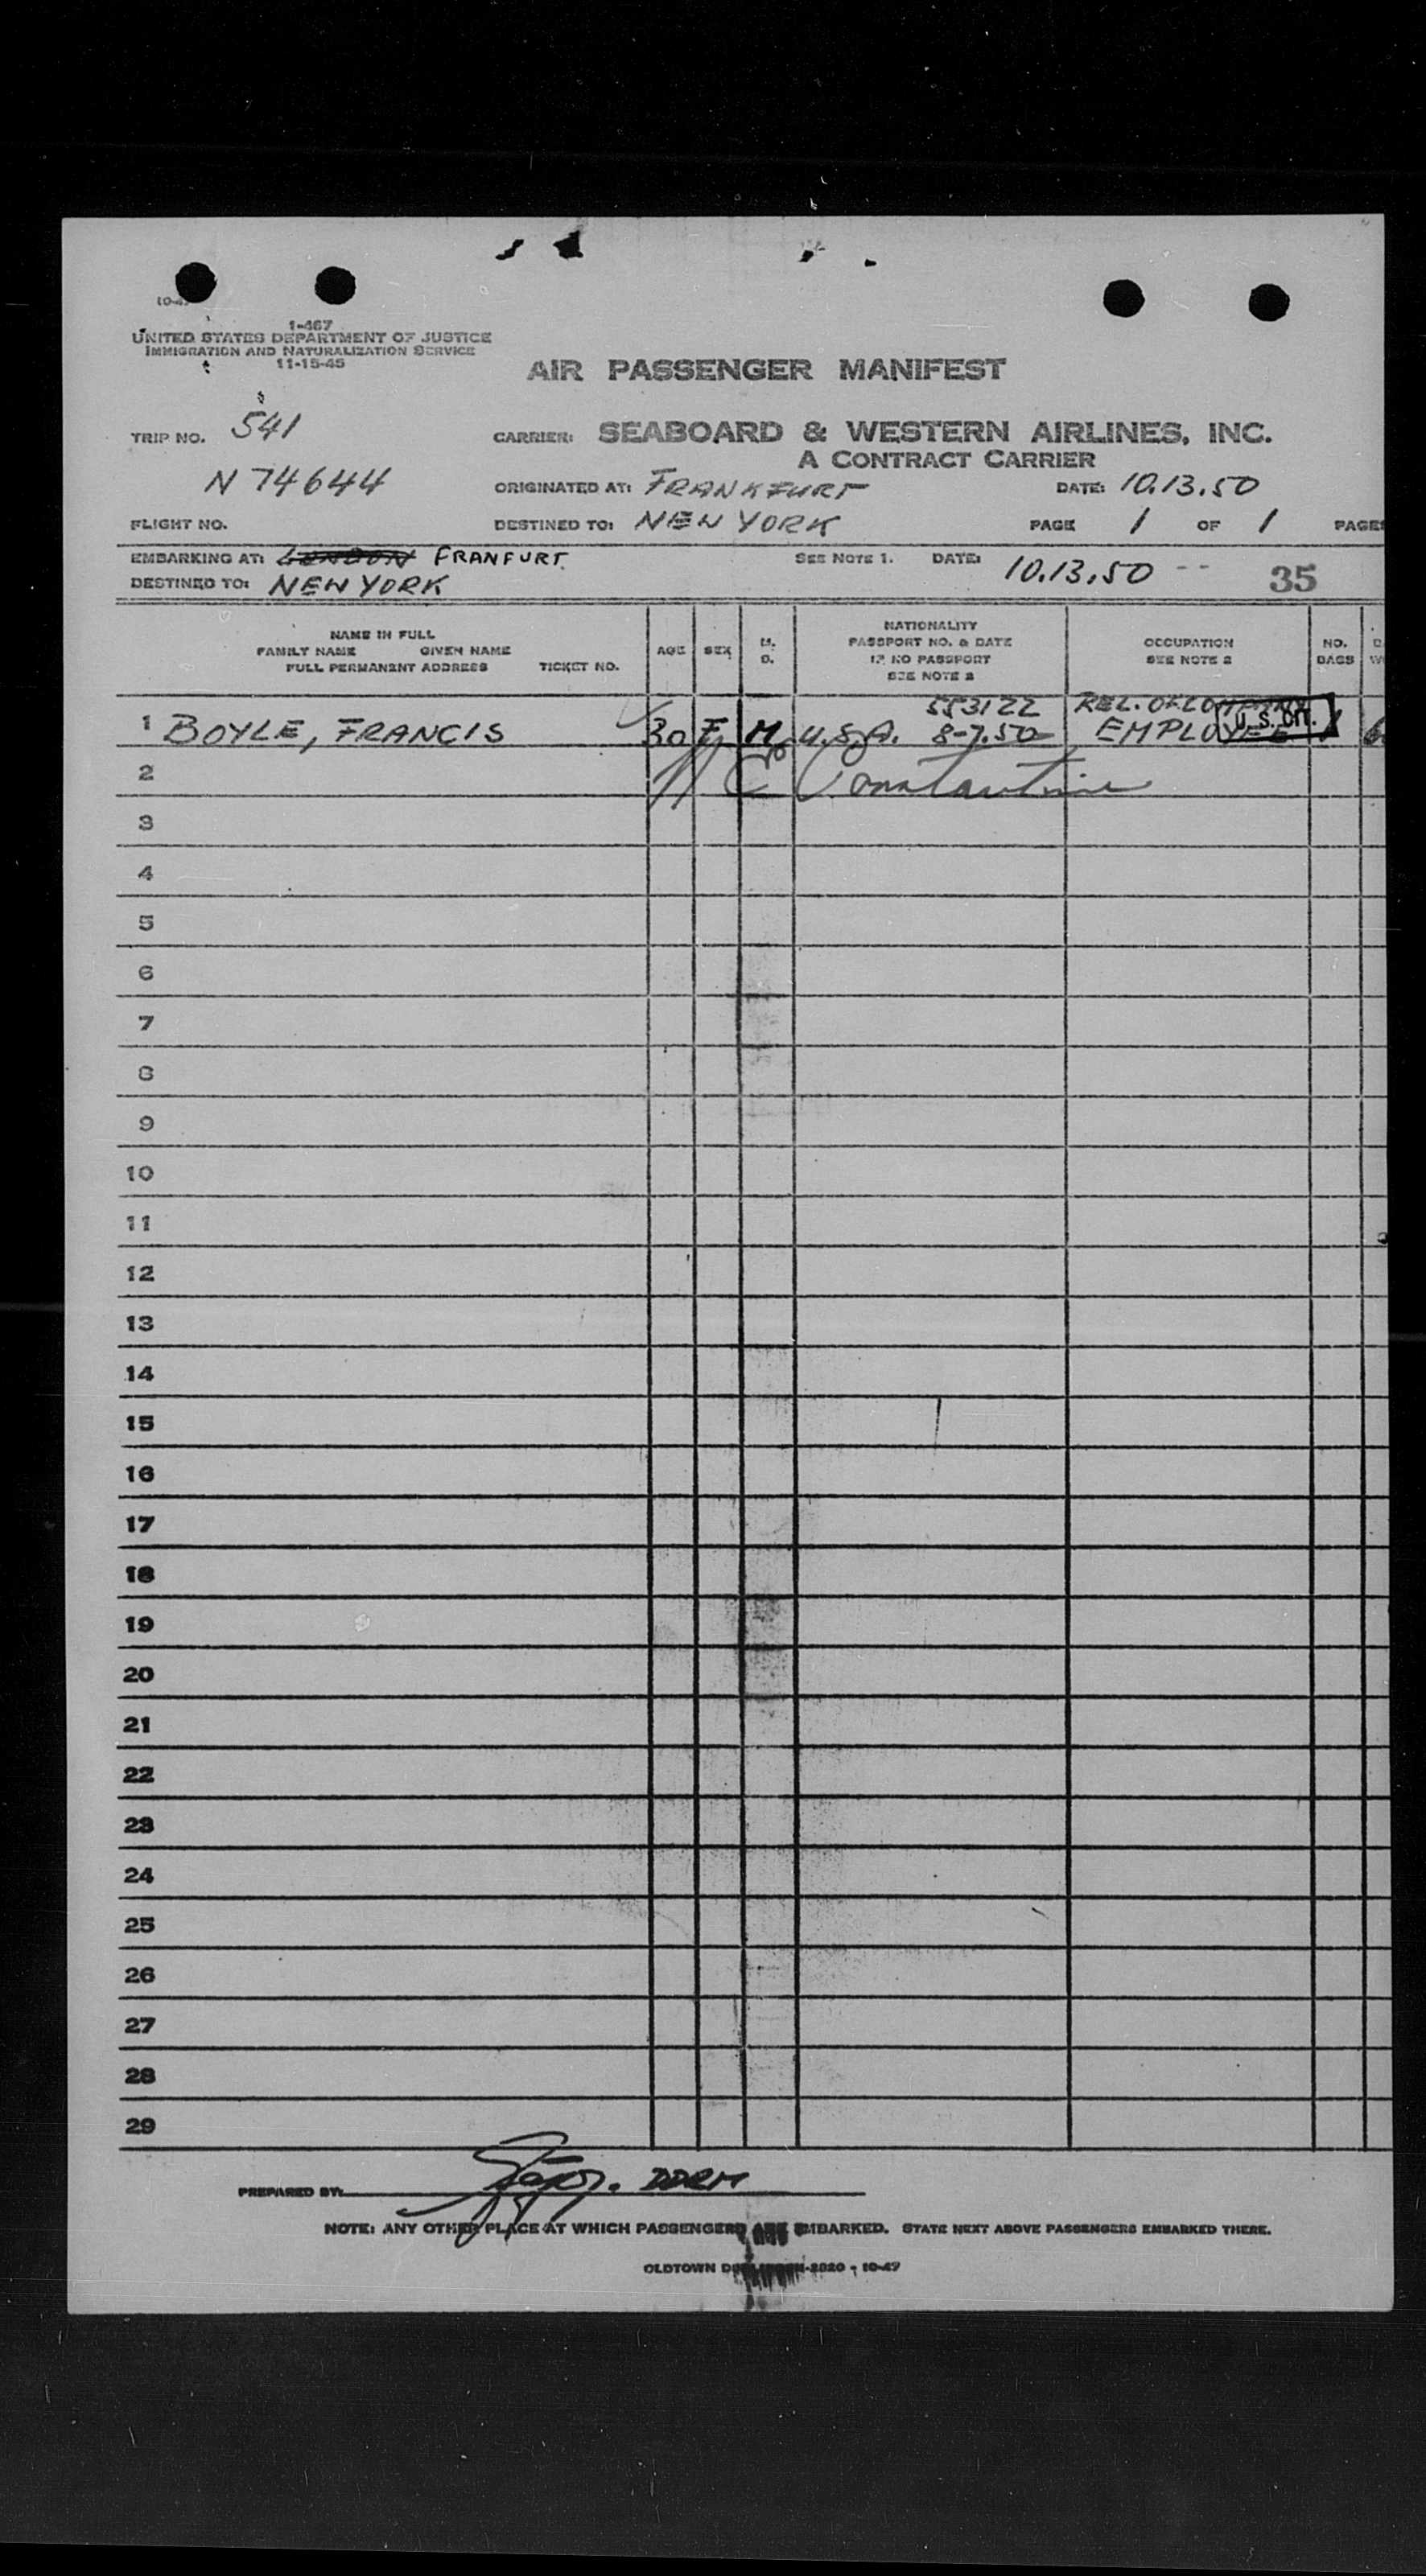 10-47
1-467
UNITED STATES DEPARTMENT OF JUSTICE
IMMIGRATION AND NATURALIZATION SERVICE
11-15-45
AIR PASSENGER MANIFEST
TRIP NO. 541 CARRIER: SEABOARD & WESTERN AIRLINES, INC.
A CONTRACT CARRIER
N 74644 ORIGINATED AT: FRANKFURT DATE: 10.13.50
FLIGHT NO. DESTINED TO: NEW YORK PAGE 1 OF 1 PAGES
EMBARKING AT: LONDON FRANFURT. SEE NOTE 1. DATE: 10.13.50 -- 35
DESTINED TO: NEW YORK
NAME IN FULL
FAMILY NAME GIVEN NAME
FULL PERMANENT ADDRESS TICKET NO.
AGE
SEX
M.
D.
NATIONALITY
PASSPORT NO. & DATE
IF NO PASSPORT
SEE NOTE 2
OCCUPATION
SEE NOTE 2
NO.
BAGS
553122 REL. OF COMPANY
1 BOYLE, FRANCIS 30 F M U.S.A. 8-7.50 EMPLOYEE U.S. CIT. 1
2 Constantine
3
4
5
6
7
8
9
10
11
12
13
14
15
16
17
18
19
20
21
22
23
24
25
26
27
28
29
PREPARED BY: DDRM
NOTE: ANY OTHER PLACE AT WHICH PASSENGERS ARE EMBARKED. STATE NEXT ABOVE PASSENGERS EMBARKED THERE.
OLDTOWN -2020 - 10-47